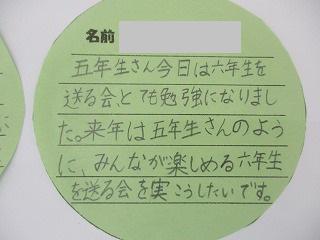 名前
五年生さん今日は六年生を
送る会とても勉強になりまし
た。来年は五年生さんのよう
に、みんなが楽しめる六年生
を送る会を実こうしたいです。